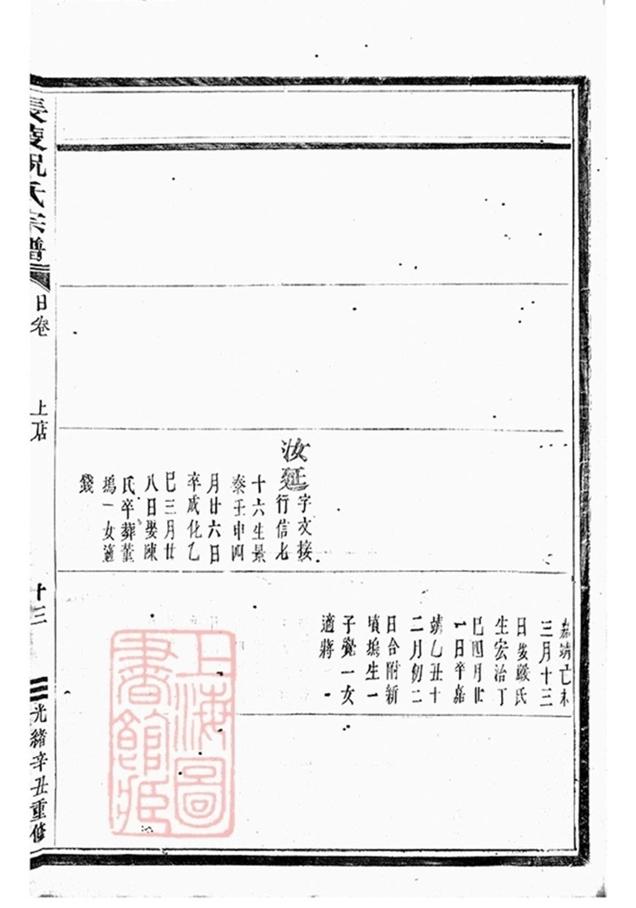 汝廷
字文接
行信七
十六生景
泰壬申四
月廿六日
卒成化乙
巳三月廿
八日娶陳
氏卒葬董
塢一女適
錢
嘉靖丁未
三月十三
日娶嚴氏
生宏治丁
巳四月廿
一日卒嘉
靖乙丑十
二月初二
日合附新
墳塢生一
子覺一女
適蔣
長陵祝氏宗譜
日卷
上店
廿三
光緒辛丑重修
上海圖
書館藏